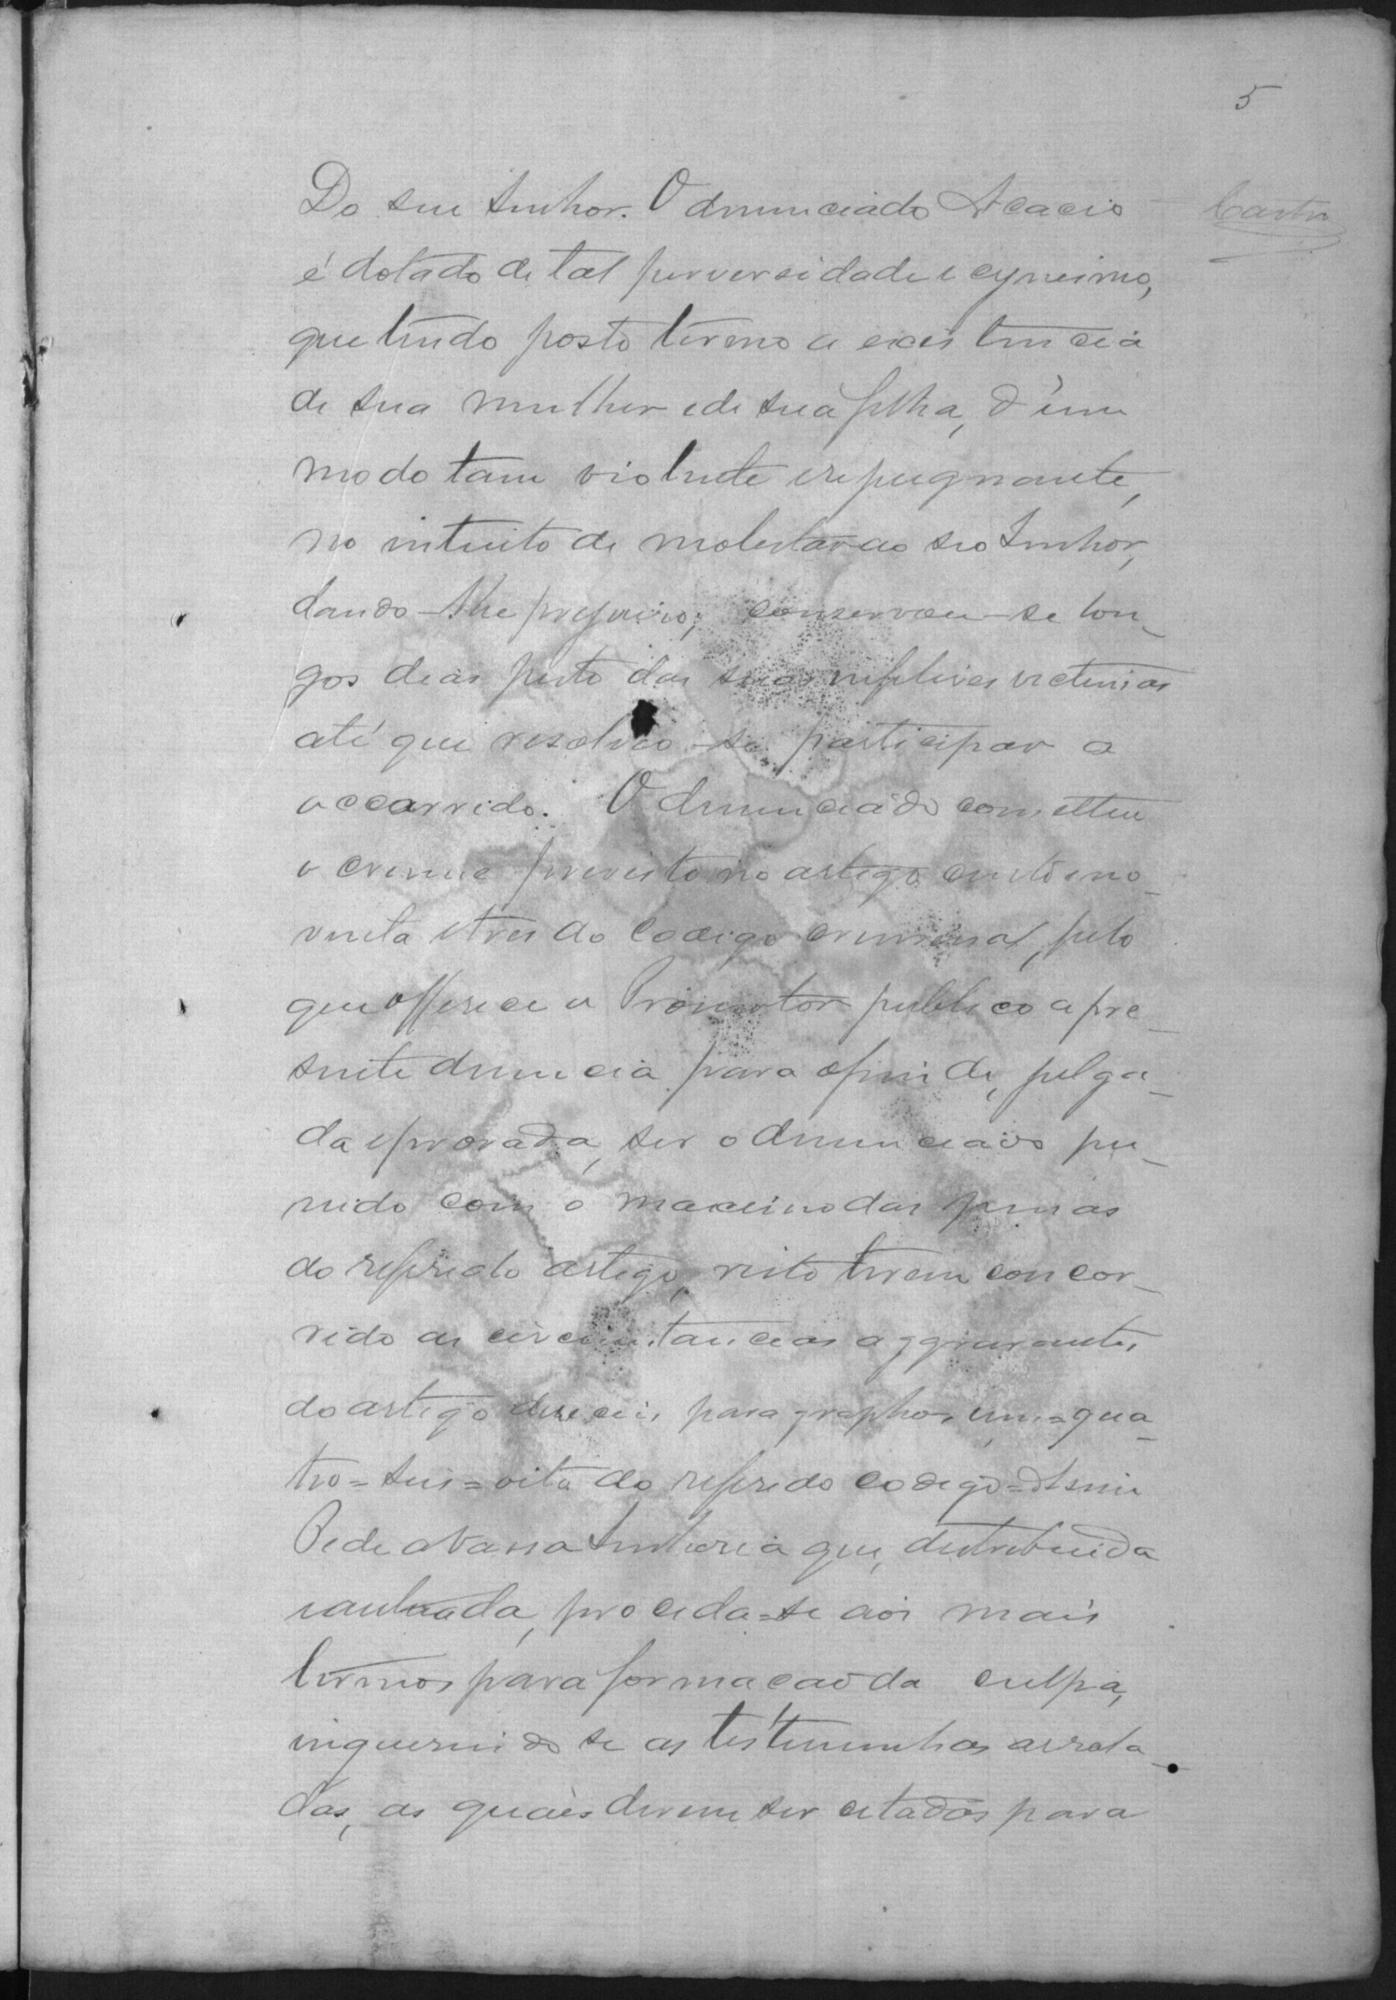 5
Castro
Do seu Senhor. O denunciado Acacio
é dotado de tal perversidade e cynismo,
que tendo posto termo a existencia
de sua mulher e de sua filha, d'um
modo tam violente e repugnante,
no intuito de molestar ao seo Senhor,
dando-lhe prejuiso; conservou-se lon-
gos dias perto das suas infelises victimas
até que resolveo-se participar o
occorrido. O denunciado cometteu
o crime previsto no artigo cento e no-
venta e tres do codigo criminal, pelo
que offerece o Promotor publico a pre-
sente denuncia para afim de, julga-
da e provada, ser o denunciado pu-
nido com o maximo das penas
do referido artigo, visto terem concor-
rido as circumstancias aggravantes
do artigo deseceis, paragraphos um=qua-
tro=seis=oito do referido codigo=Assim
Pede a Vossa Senhoria que, distribuida
e autuada, proceda=se aos mais
termos para formacaõ da culpa,
inquerindo se as testimunhas arrola-
das, as quaes devem ser citadas para